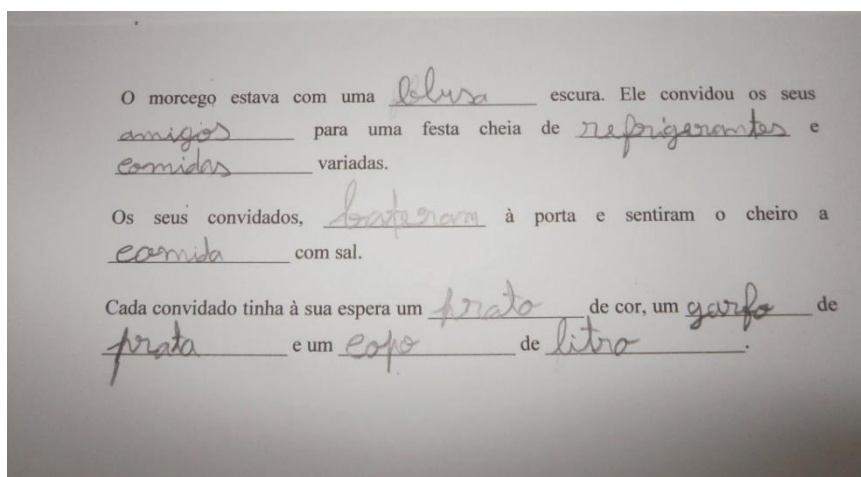 O morcego estava com uma blusa escura. Ele convidou os seus
amigos para uma festa cheia de refrigerantes e
comidas variadas.
Os seus convidados, bateram à porta e sentiram o cheiro a
comida com sal.
Cada convidado tinha à sua espera um prato de cor, um garfo de
prata e um copo de litro.